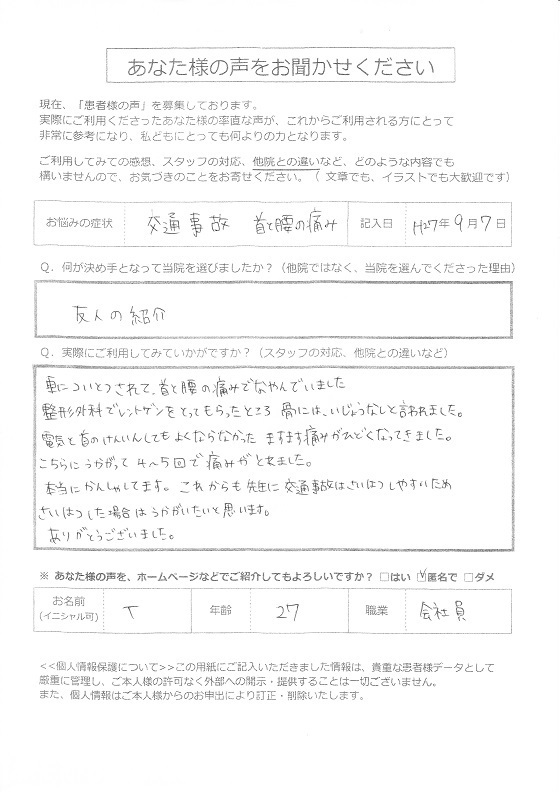 あなた様の声をお聞かせください
現在、「患者様の声」を募集しております。
実際にご利用くださったあなた様の率直な声が、これからご利用される方にとって
非常に参考になり、私どもにとっても何よりの力となります。
ご利用してみての感想、スタッフの対応、他院との違いなど、どのような内容でも
構いませんので、お気づきのことをお寄せください。（ 文章でも、イラストでも大歓迎です）
お悩みの症状 交通事故 首と腰の痛み 記入日 H27年9月7日
Q．何が決め手となって当院を選びましたか？（他院ではなく、当院を選んでくださった理由）
友人の紹介
Q．実際にご利用してみていかがですか？（スタッフの対応、他院との違いなど）
車についとつされて、首と腰の痛みでなやんでいました
整形外科でレントゲンをとってもらったところ 骨には、いじょうなしと言われました。
電気と首のけんいんしてもよくならなかった ますます痛みがひどくなってきました。
こちらにうかがって 4～5回で痛みがとれました。
本当にかんしゃしてます。これからも先生に交通事故はさいはつしやすいため
さいはつした場合はうかがいたいと思います。
ありがとうございました。
※ あなた様の声を、ホームページなどでご紹介してもよろしいですか？ □はい ☑匿名で □ダメ
お名前 T 年齢 27 職業 会社員
(イニシャル可)
<<個人情報保護について>>この用紙にご記入いただきました情報は、貴重な患者様データとして
厳重に管理し、ご本人様の許可なく外部への開示・提供することは一切ございません。
また、個人情報はご本人様からのお申出により訂正・削除いたします。